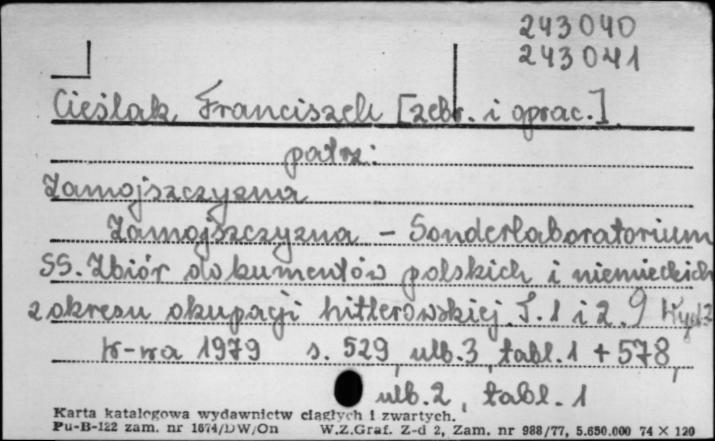 243040
243041
Cieślak Franciszek [zebr. i oprac.]
patrz:
Zamojszczyzna
Zamojszczyzna - Sonderlaboratorium
SS. Zbiór dokumentów polskich i niemieckich
z okresu okupacji hitlerowskiej. T. 1 i 2.
W-wa 1979 s. 529, ulb. 3, tabl. 1 + 578,
ulb. 2, tabl. 1
Karta katalogowa wydawnictw ciągłych i zwartych.
Pu-B-122 zam. nr 1674/DW/On W.Z.Graf. Z-d 2, Zam. nr 988/77, 5.650.000 74 × 120